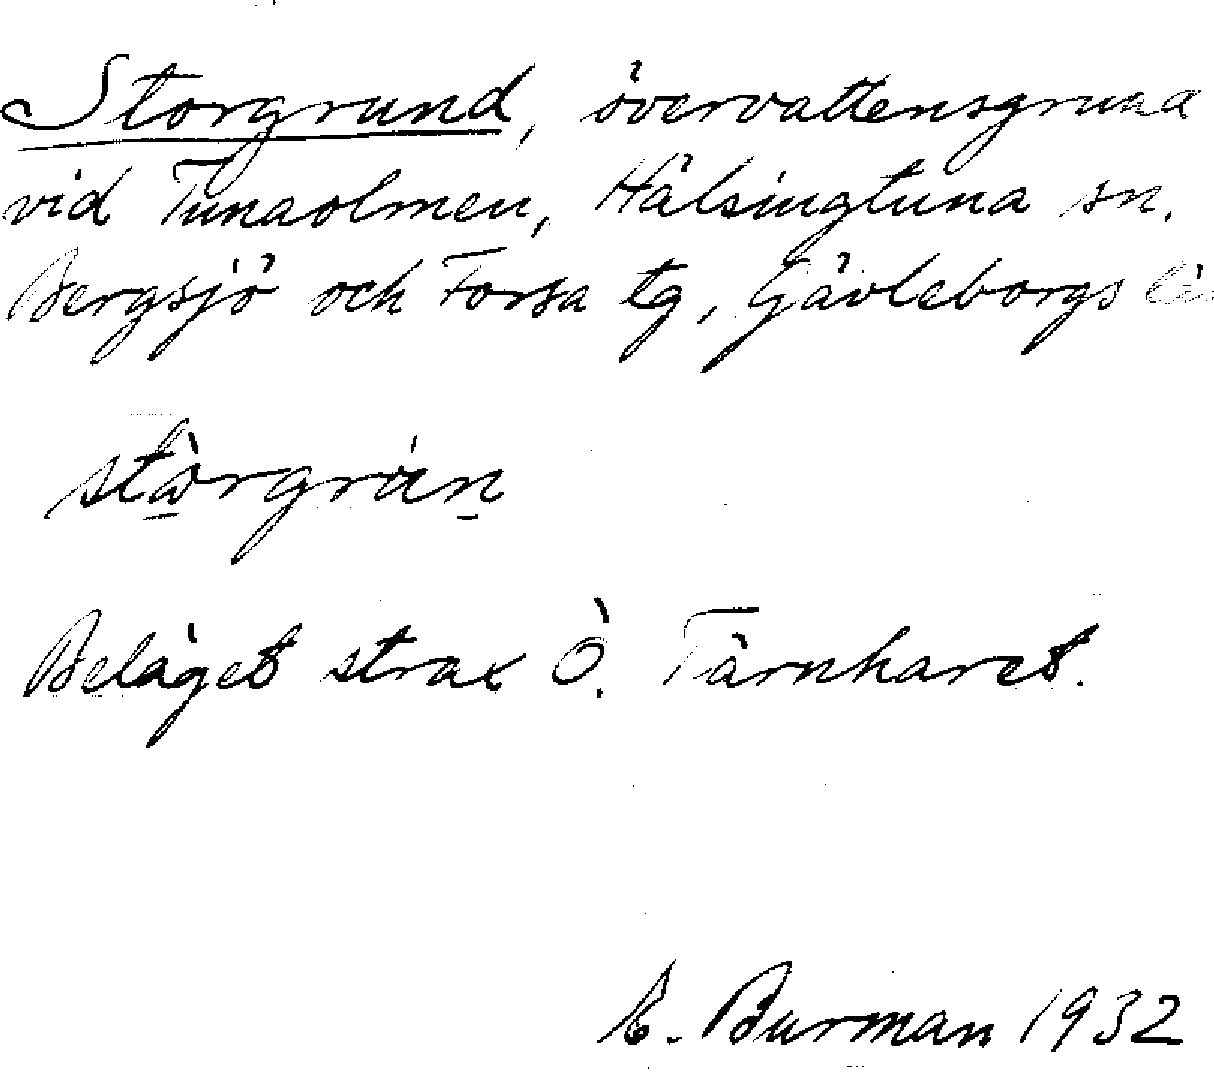 Storgrund, övervattensgrund
vid Tunaolmen, Hälsingtuna sn.
Bergsjö och Forsa tg, Gävleborgs län
Beläget strax Ö. Tärnharet.
E. Burman 1932